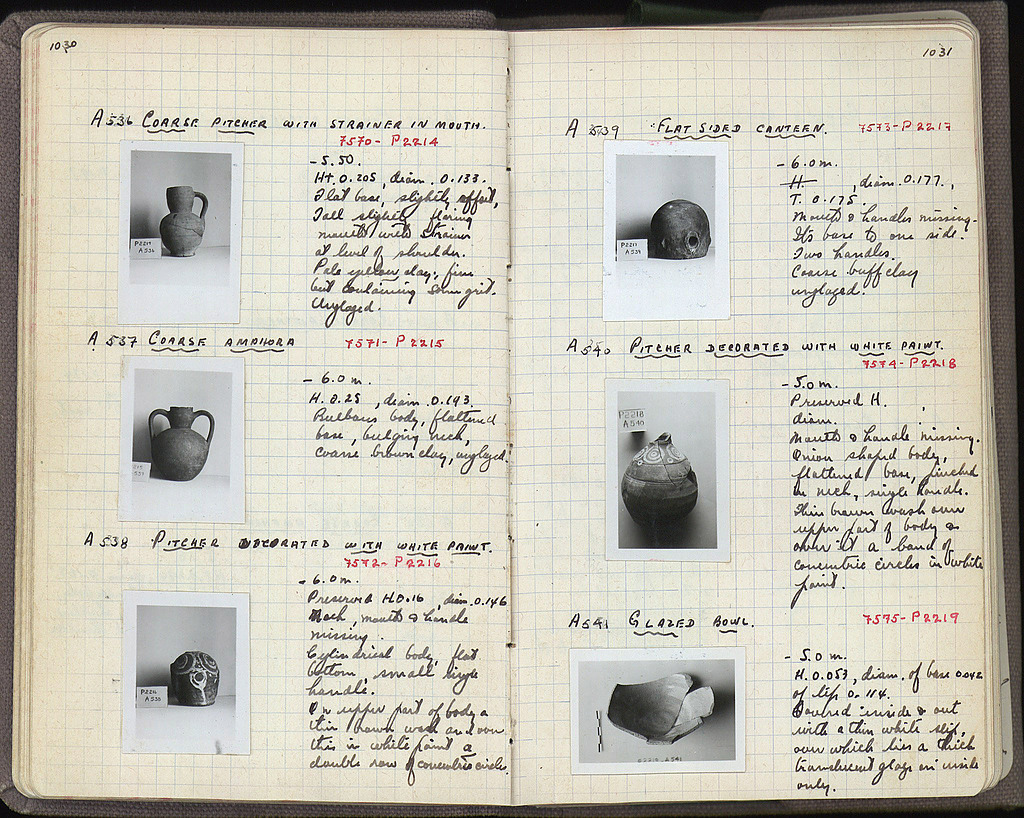 1030
A 536 COARSE PITCHER WITH STRAINER IN MOUTH.
7570 - P 2214
- 5.50.
Ht. 0.205, diam. 0.133.
Flat base, slightly offset,
Tall slightly flaring
mouth with strainer
at level of shoulder.
Pale yellow clay, fine
but containing some grit.
Unglazed.
P2214
A 536
A 537 COARSE AMPHORA
7571 - P 2215
- 6.0 m.
H. 0.25, diam. 0.193.
Bulbous body, flattened
base, bulging neck,
coarse brown clay, unglazed.
A 538 PITCHER DECORATED WITH WHITE PAINT.
7572 - P 2216
- 6.0 m.
Preserved H. 0.16, diam. 0.146
Neck, mouth & handle
missing.
Cylindrical body, flat
bottom, small single
handle.
On upper part of body a
thin brown wash and over
this in white paint a
double row of concentric circles.
P2216
A 538
1031
A 539 FLAT SIDED CANTEEN.
7573 - P 2217
- 6.0 m.
H. , diam. 0.177.,
T. 0.175.
Mouth & handles missing.
Its base to one side.
Two handles.
Coarse buff clay
unglazed.
P2217
A 539
A 540 PITCHER DECORATED WITH WHITE PAINT.
7574 - P 2218
- 5.0 m.
Preserved H.
diam.
Mouth & handle missing.
Onion shaped body,
flattened base, pinched
in neck, single handle.
Thin brown wash over
upper part of body &
over it a band of
concentric circles in white
paint.
P2218
A 540
A 541 GLAZED BOWL.
7575 - P 2219
- 5.0 m.
H. 0.053, diam. of base 0.042
of lip 0.114.
Covered inside & out
with a thin white slip,
over which lies a thick
translucent glaze on inside
only.
P2219 A 541